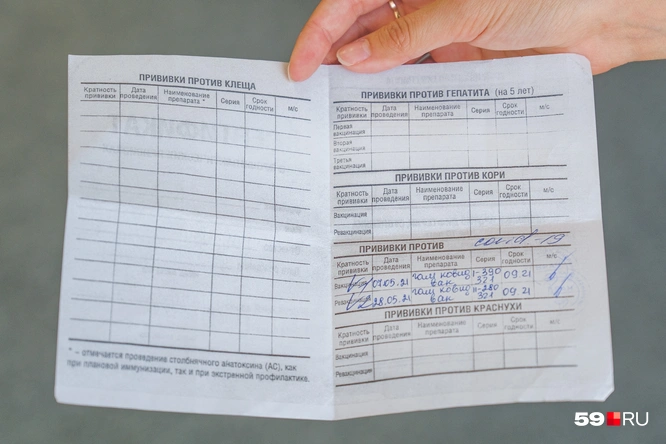 ПРИВИВКИ ПРОТИВ КЛЕЩА
Кратность прививки Дата проведения Наименование препарата * Серия Срок годности м/с
* – отмечается проведение столбнячного анатоксина (АС), как
при плановой иммунизации, так и при экстренной профилактике.
ПРИВИВКИ ПРОТИВ ГЕПАТИТА (на 5 лет)
Кратность прививки Дата проведения Наименование препарата Серия Срок годности м/с
Первая вакцинация
Вторая вакцинация
Третья вакцинация
ПРИВИВКИ ПРОТИВ КОРИ
Кратность прививки Дата проведения Наименование препарата Серия Срок годности м/с
Вакцинация
Ревакцинация
ПРИВИВКИ ПРОТИВ covid-19
Кратность прививки Дата проведения Наименование препарата Серия Срок годности м/с
Вакцинация V1 07.05.21 гам ковид вак I-390 321 09 21
Ревакцинация V2 28.05.21 гам ковид вак II-280 321 09 21
ПРИВИВКИ ПРОТИВ КРАСНУХИ
Кратность прививки Дата проведения Наименование препарата Серия Срок годности м/с
Вакцинация
Ревакцинация
59.RU